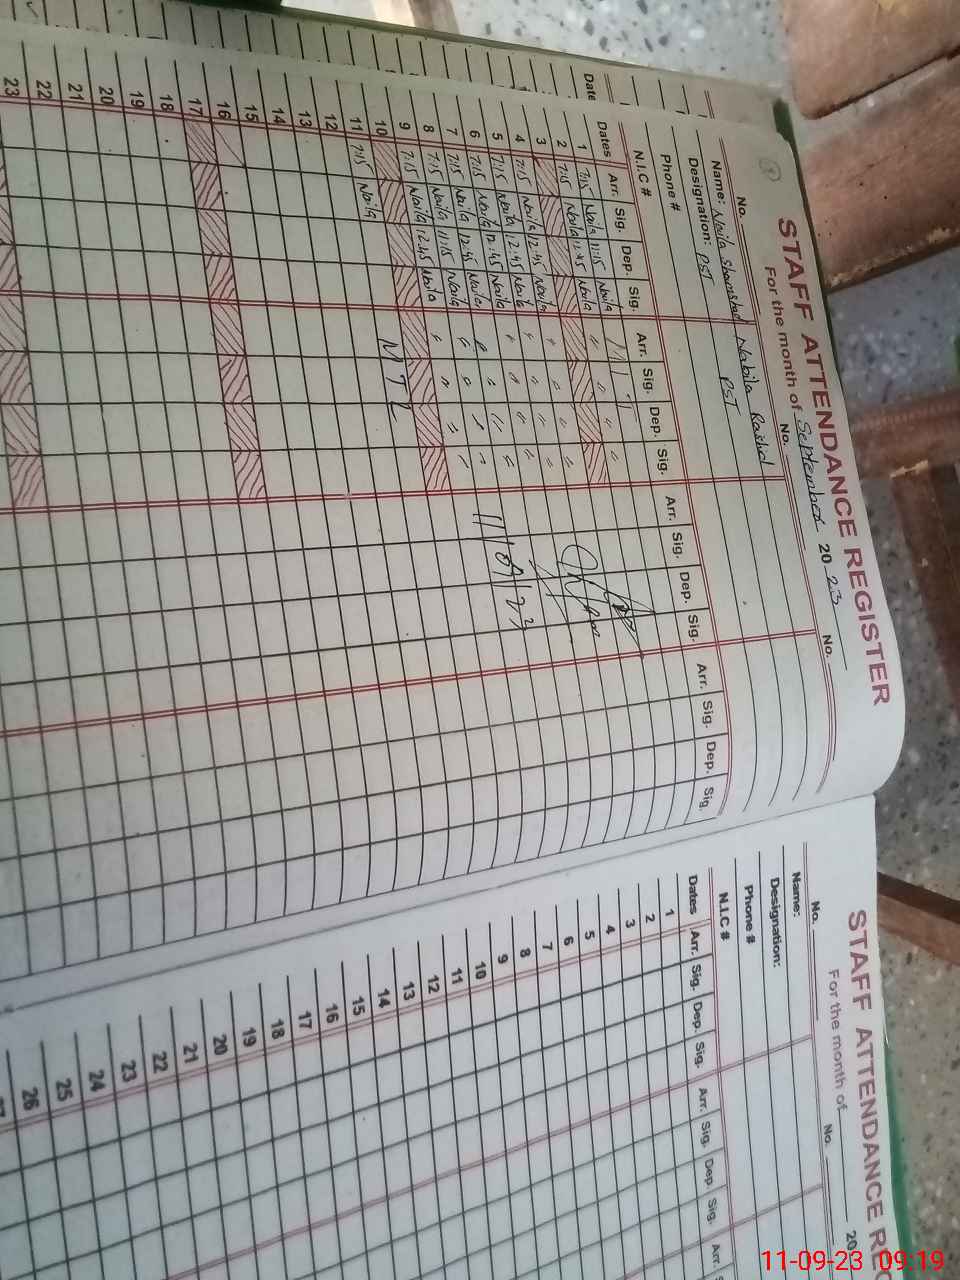 STAFF ATTENDANCE REGISTER
For the month of September 2023
No. No. No.
Name: Naila Shamshad Nabila Rashid
Designation: PST PST
Phone #
N.I.C #
Dates Arr. Sig. Dep. Sig. Arr. Sig. Dep. Sig. Arr. Sig. Dep. Sig. Arr. Sig. Dep. Sig.
1 7:15 Naila 11:15 Naila
2 7:15 Naila 12:45 Naila " " " "
3
4 7:15 Naila 12:45 Naila " " " "
5 7:15 Naila 12:45 Naila " " " "
6 7:15 Naila 12:45 Naila " " " "
7 7:15 Naila 12:45 Naila " " " "
8 7:15 Naila 11:15 Naila " " " "
9 7:15 Naila 12:45 Naila " " " "
10
11 7:15 Naila
12
13
14
15
16
17
18
19
20
21
22
23
Date
STAFF ATTENDANCE RE
For the month of 20
No. No.
Name:
Designation:
Phone #
N.I.C #
Dates Arr. Sig. Dep. Sig. Arr. Sig. Dep. Sig. Arr.
1
2
3
4
5
6
7
8
9
10
11
12
13
14
15
16
17
18
19
20
21
22
23
24
25
26
11-09-23 09:19